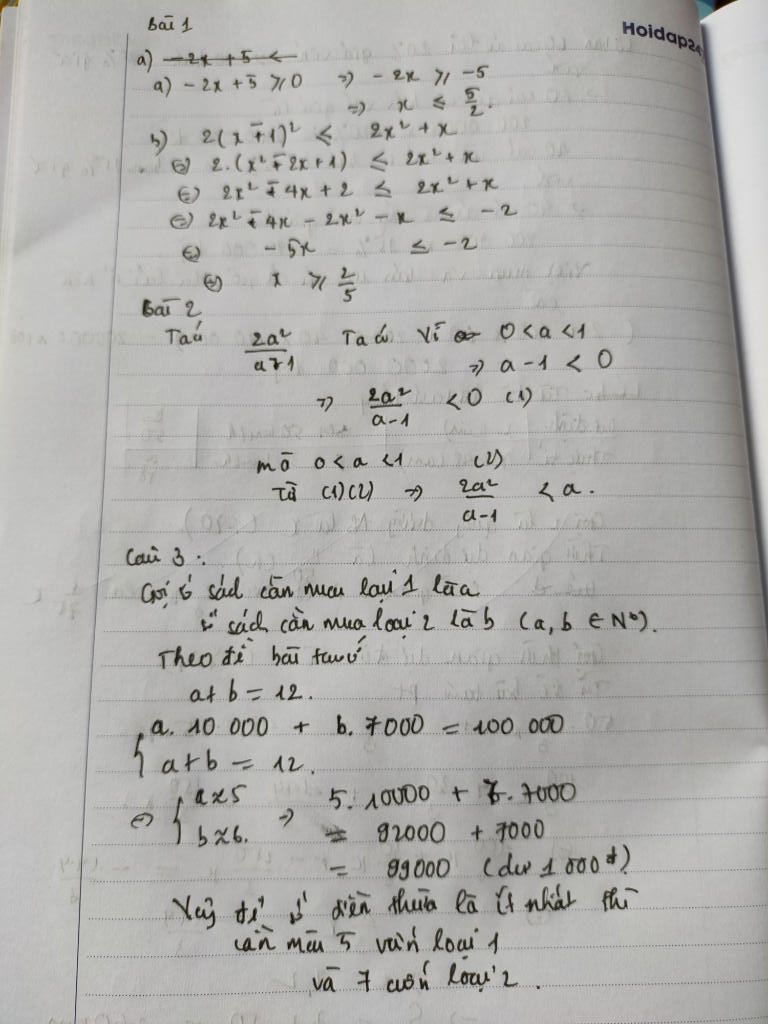 Bài 1
Hoidap247
a) -2x + 5 <
a) -2x + 5 ⩾ 0 => -2x ⩾ -5
=> x ≤ 5/2
b) 2(x-1)² ≤ 2x² + x
⇔ 2.(x² - 2x + 1) ≤ 2x² + x
⇔ 2x² - 4x + 2 ≤ 2x² + x
⇔ 2x² - 4x - 2x² - x ≤ -2
⇔ -5x ≤ -2
⇔ x ⩾ 2/5
Bài 2
Ta có 2a²/(a-1) Ta có Vì 0 < a < 1
=> a - 1 < 0
=> 2a²/(a-1) < 0 (1)
mà 0 < a < 1 (2)
Từ (1)(2) => 2a²/(a-1) < a.
Câu 3:
Gọi số sách cần mua loại 1 là a
số sách cần mua loại 2 là b (a, b ∈ N*).
Theo đề bài ta có
a + b = 12.
{ a. 10 000 + b. 7000 = 100 000
a + b = 12.
⇔ { a ≈ 5 => 5. 10000 + 7. 7000
b ≈ 6. = 92000 + 7000
= 99000 (dư 1 000đ)
Vậy để số tiền thừa là ít nhất thì
cần mua 5 cuốn loại 1
và 7 cuốn loại 2.